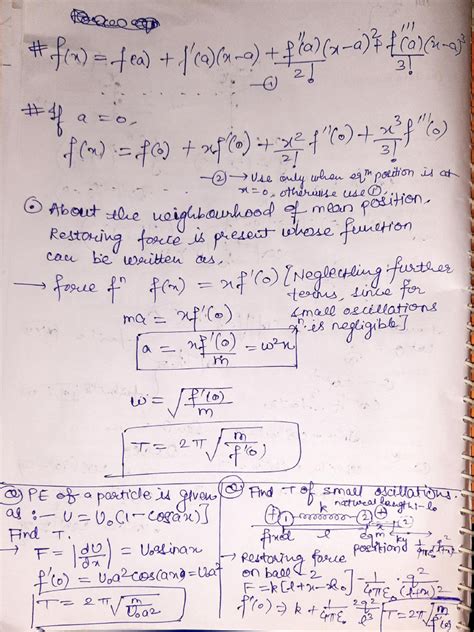 # f(x) = f(a) + f'(a)(x-a) + f''(a)/2! (x-a)² + f'''(a)/3! (x-a)³
—①
# If a = 0,
f(x) = f(0) + xf'(0) + x²/2! f''(0) + x³/3! f'''(0)
② → Use only when eqᵐ position is at
x=0, otherwise use ①.
⊙ About the neighbourhood of mean position,
Restoring force is present whose function
can be written as,
→ force fⁿ f(x) = xf'(0) [Neglecting further
terms, since for
small oscillations
xⁿ is negligible]
ma = xf'(0)
a = xf'(0)/m = ω²x
ω = √(f'(0)/m)
T = 2π √(m/f'(0))
Q) PE of a particle is given
as :- U = U₀(1 - cosax)]
Find T.
→ F = |dU/dx| = U₀a sinax
f'(0) = U₀a² cos(ax) = U₀a²
T = 2π √(m/U₀a²)
Q) Find T of small oscillations.
natural length = l₀
k
① ②
fixed l eqᵐ position
→ Restoring force
on ball 2
F = k[l+x-l₀] - 1/4πε₀ q²/(l+x)²
f'(0) = k + 1/4πε₀ 2q²/l³
T = 2π √(m/f'(0))